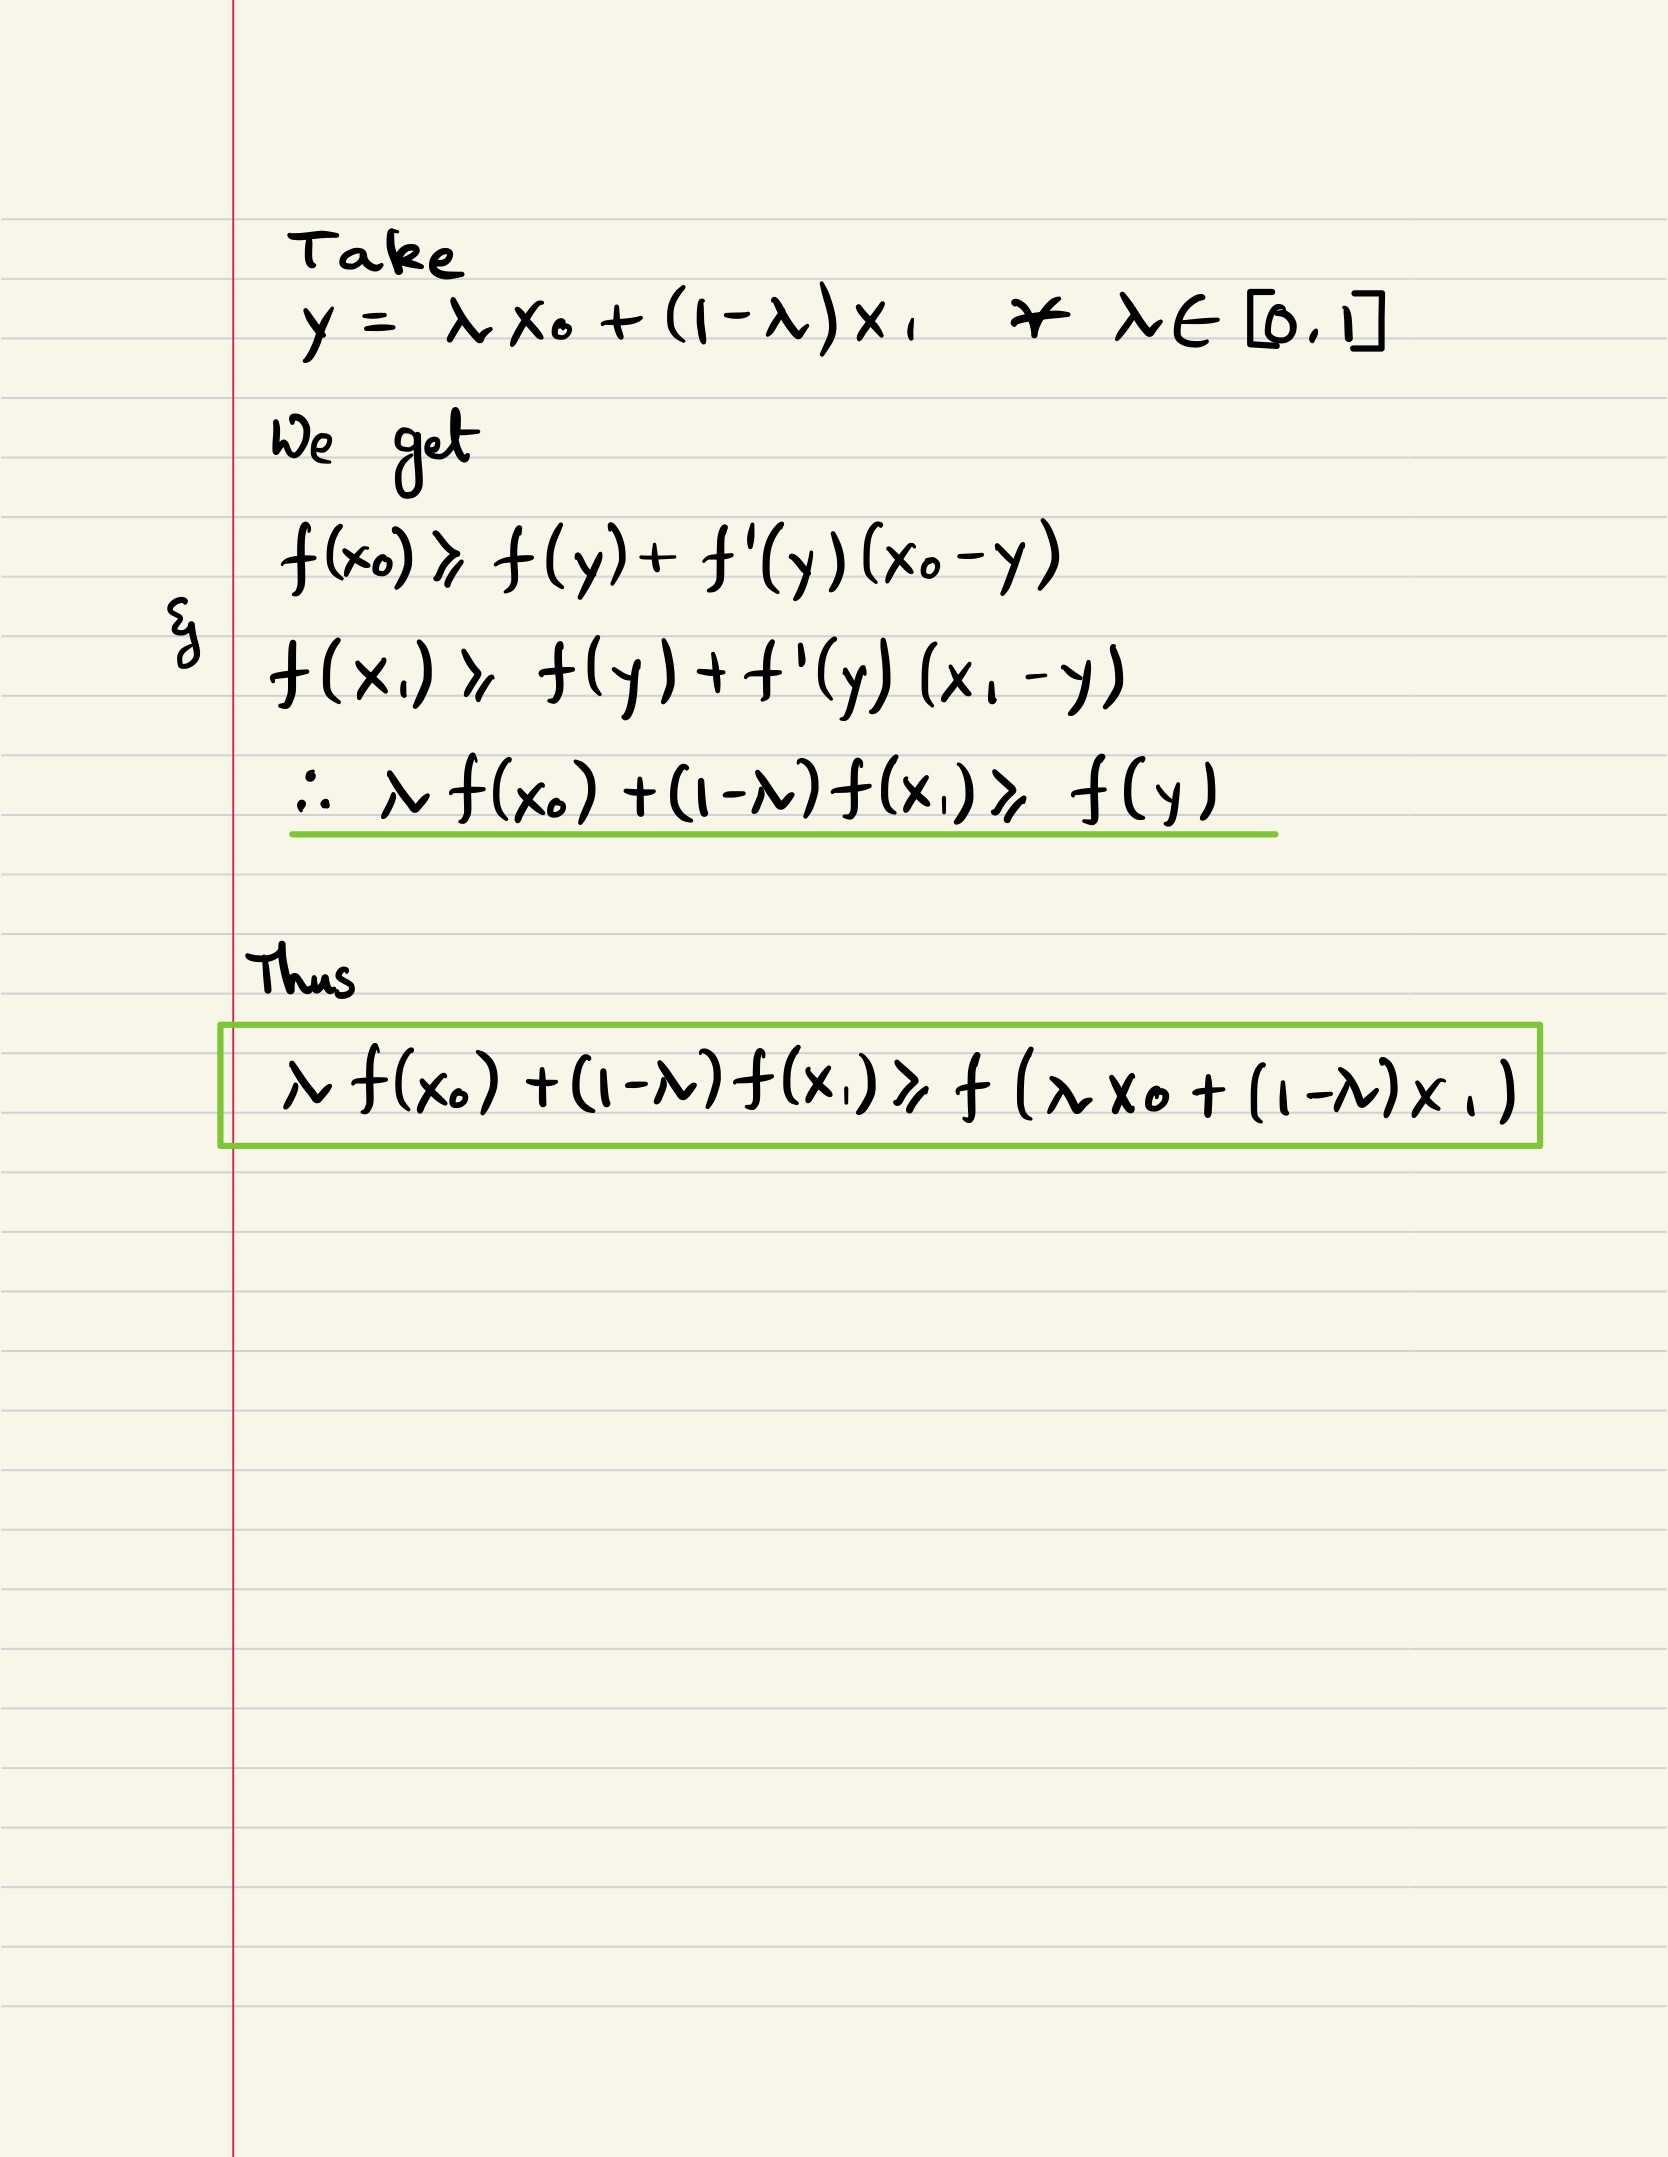 Take
y = λx₀ + (1-λ)x₁ ∀ λ∈[0,1]
We get
f(x₀) ⩾ f(y) + f'(y)(x₀-y)
&
f(x₁) ⩾ f(y) + f'(y)(x₁-y)
∴ λf(x₀) + (1-λ)f(x₁) ⩾ f(y)
Thus
λf(x₀) + (1-λ)f(x₁) ⩾ f(λx₀ + (1-λ)x₁)